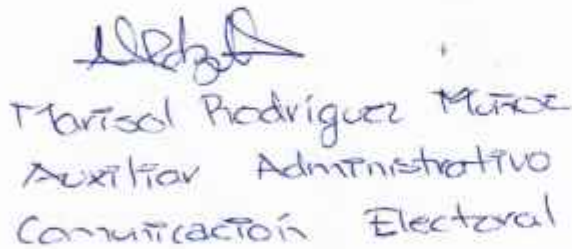 Marisol Rodríguez Muñoz
Auxiliar Administrativo
Comunicación Electoral